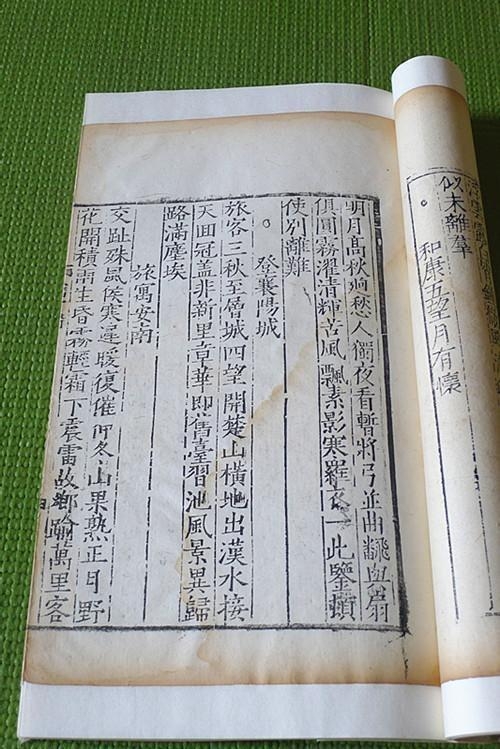 似未離羣
和康五望月有懷
明月髙秋逈愁人獨夜看暫將弓並曲飜與扇
俱圓霧濯清輝苦風飄素影寒羅衣一此鑒頓
使别離難
登襄陽城
旅客三秋至層城四望開楚山橫地出漢水接
天囬冠盖非新里章華即舊臺習池風景異歸
路滿塵埃
旅寓安南
交趾殊風候寒遲暖復催仲冬山果熟正月野
花開積雨生昏霧輕霜下震雷故鄉踰萬里客